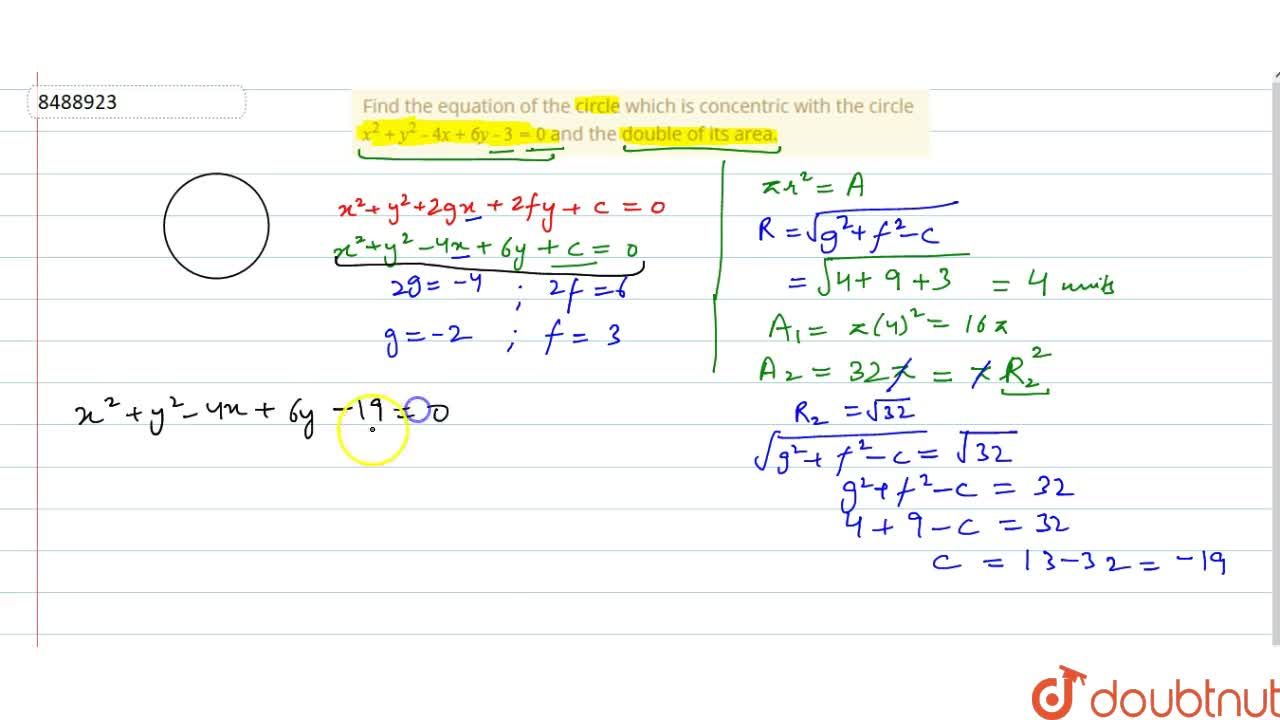 8488923
Find the equation of the circle which is concentric with the circle
x² + y² – 4x + 6y – 3 = 0 and the double of its area.
x² + y² + 2gx + 2fy + c = 0
x² + y² – 4x + 6y + c = 0
2g = -4 ; 2f = 6
g = -2 ; f = 3
x² + y² – 4x + 6y – 19 = 0
πr² = A
R = √g² + f² – c
= √4 + 9 + 3 = 4 units
A₁ = π(4)² = 16π
A₂ = 32π = πR₂²
R₂ = √32
√g² + f² – c = √32
g² + f² – c = 32
4 + 9 – c = 32
c = 13 – 32 = -19
doubtnut